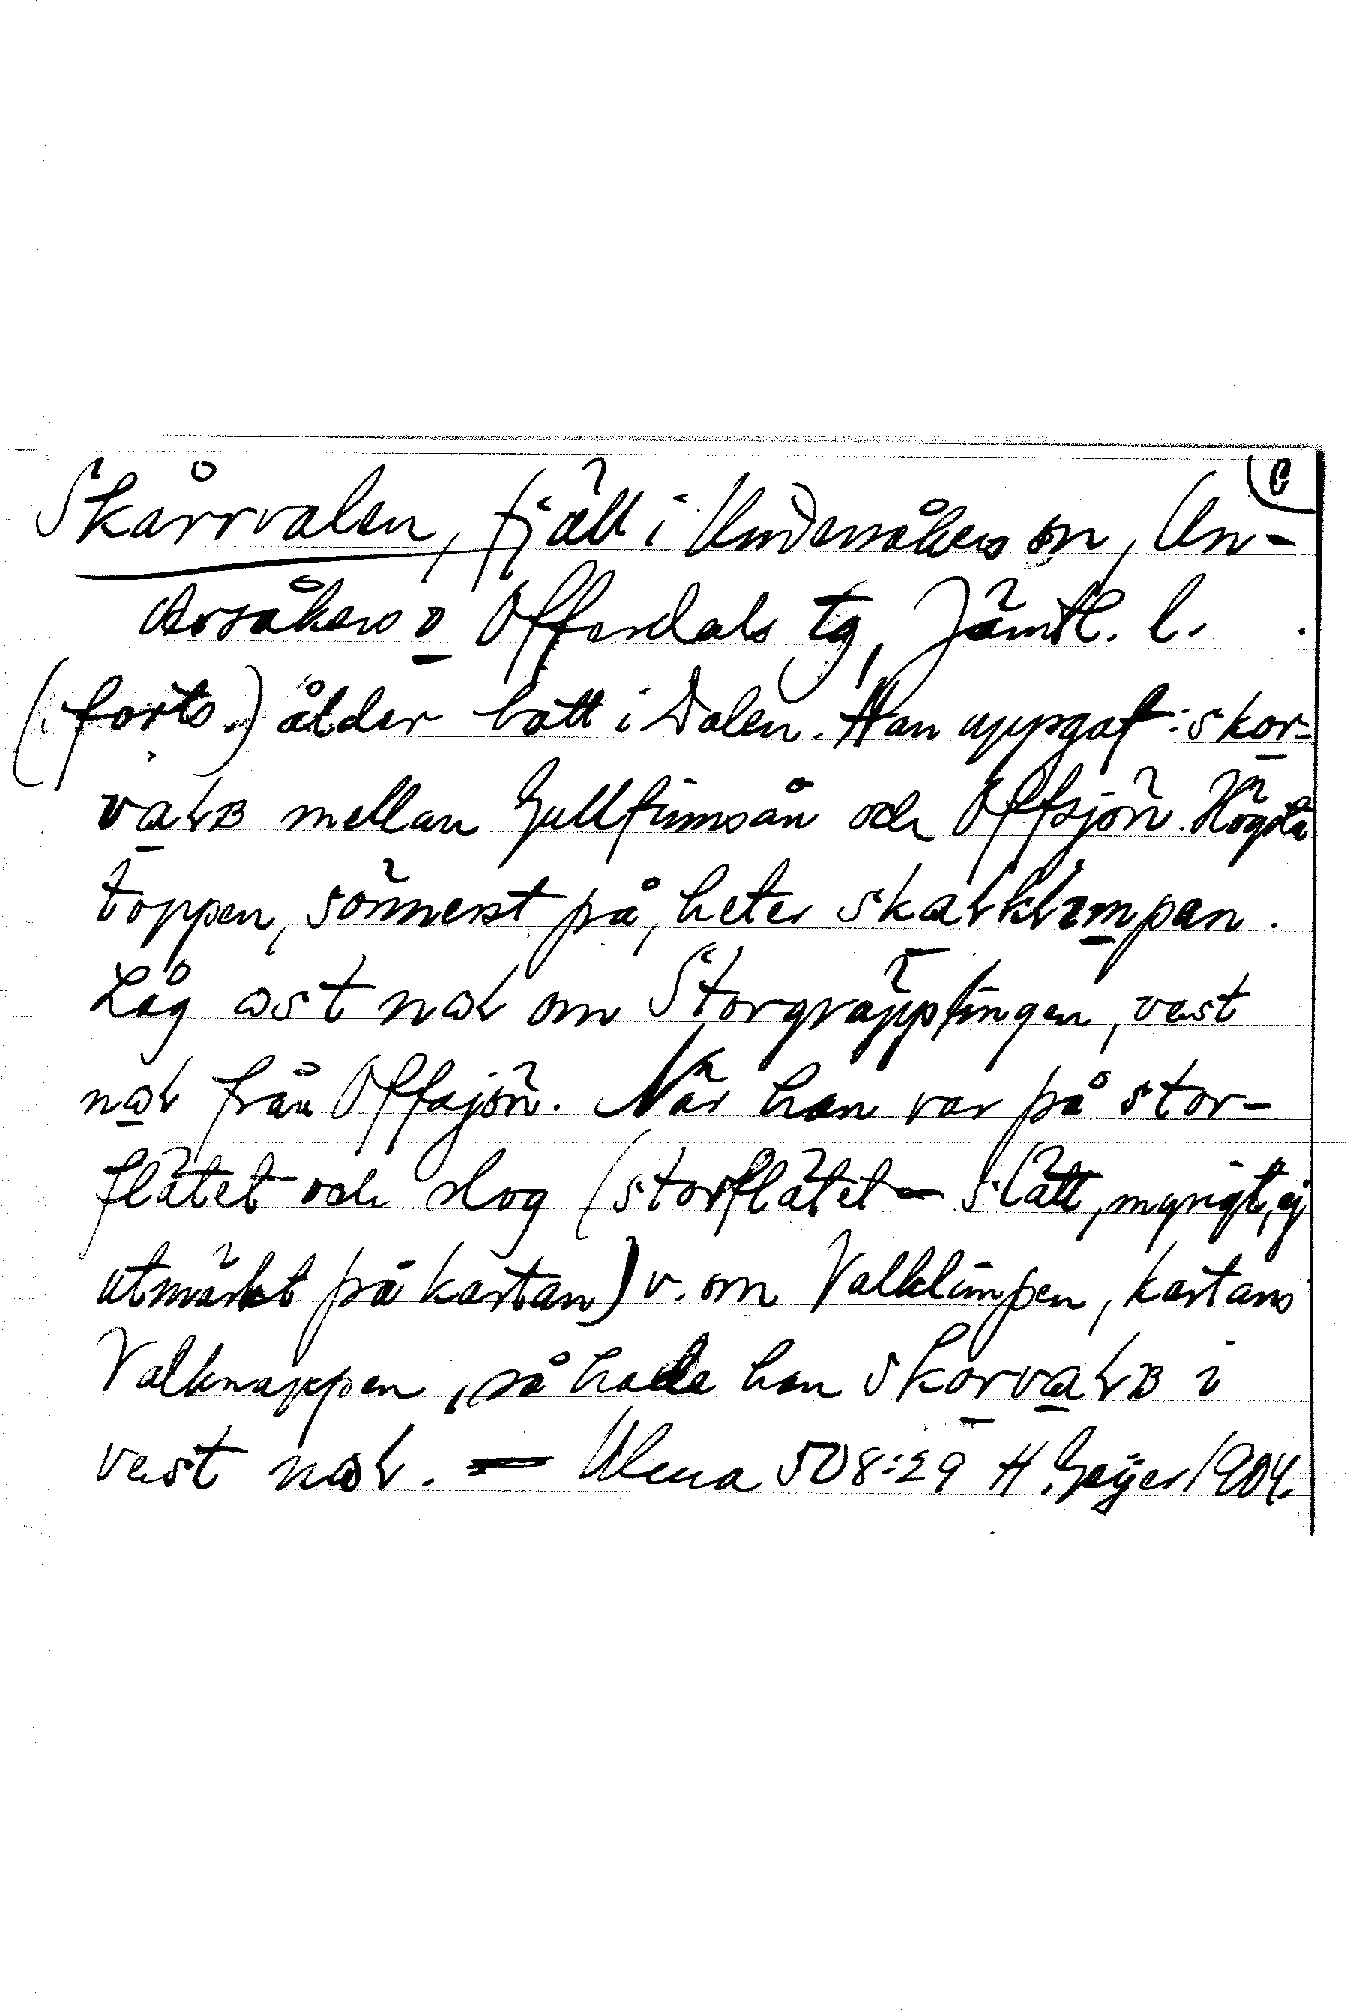 C
Skårrvalen, fjäll i Undersåkers sn, Un-
dersåkers o Offerdals tg, Jämtl. l.
(forts.) ålder bott i Dalen. Han uppgaf: skor-
mellan Gullfinnsån och Offsjön. Högsta
toppen, sönnerst på, heter
Låg om Storgräpplingen, väst
från Offsjön. När han var på stor-
flätet och slog (storflätet – slätt, myrigt, ej
utmärkt på kartan) v. om Valklimpen, kartans
Valknappen, så hade han i
väst . – Ulma 508:29 H. Geijer 1904.